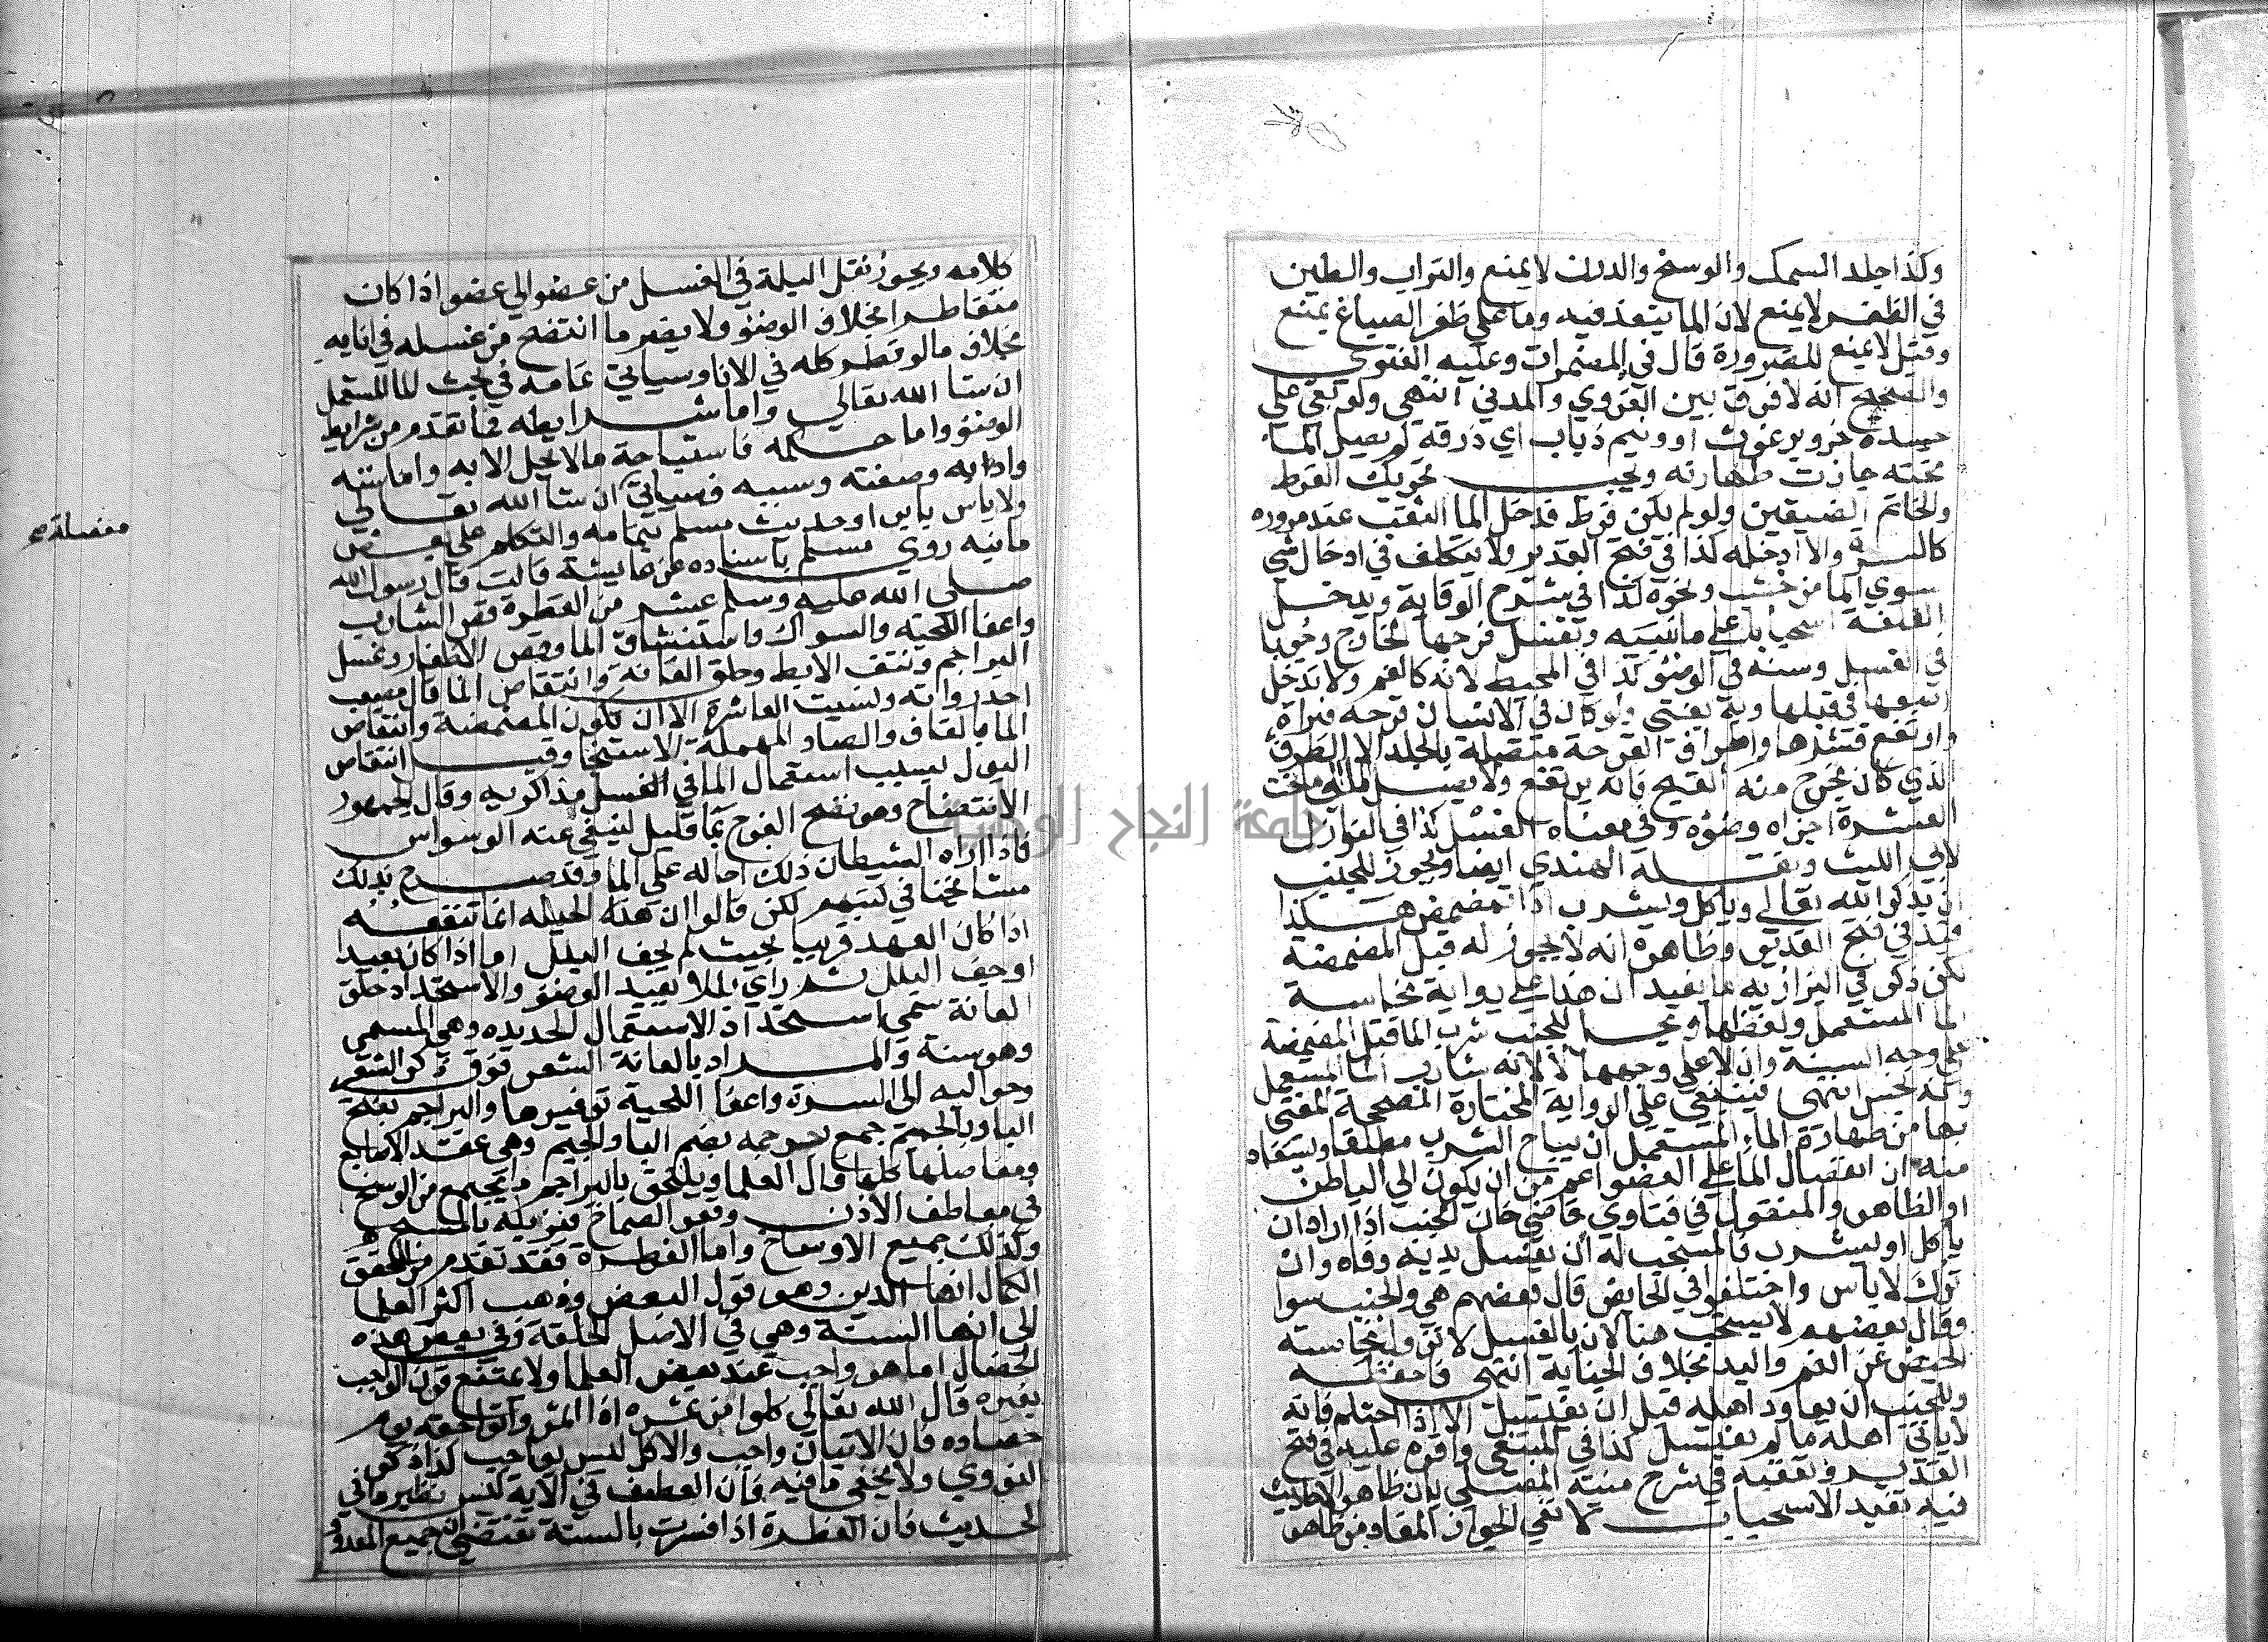 وكذا جلد السمك والوسخ والدرن لا يمنع والتراب والطين
في الظفر لا يمنع لان الما ينفذ فيه وما على ظفر الصباغ يمنع
وقيل لا يمنع للضرورة قال في المضمرات وعليه الفتوى
والصحيح انه لا فرق بين القروي والمدني انتهى ولو بقي على
جسده خرو برغوث او ونيم ذباب اي ذرقه لم يصل الما
تحته جازت طهارته ويجب تحريك القرط
والخاتم الضيقين ولو لم يكن قرط فدخل الما الثقب عند مروره
كالسرة والا ادخله كذا في فتح القدير ولا يتكلف في ادخال شي
سوى الما من خشب ونحوه كذا في شرح الوقاية ويدخل
القلفة استحبابا على ما نبينه وتغسل فرجها الخارج وجوبا
في الغسل وسنة في الوضو كذا في المحيط لانه كالفم ولا تدخل
اصبعها في قبلها وبه يفتى ولو كان في الانسان قرحة فبراة
وارتفع قشرها واطراف القرحة متصلة بالجلد الا الطرف
الذي كان يخرج منه القيح فانه يرتفع ولا يصل الما الى ما تحت
القشرة اجزاه وضوه وفي معناه الغسل كذا في النوازل
لابي الليث ونقله الهندي ايضا ويجوز للجنب
ان يذكر الله تعالى وياكل ويشرب اذا تمضمض هكذا
قيد في فتح القدير وظاهره انه لا يجوز له قبل المضمضة
لكن ذكر في البزازيه ما يفيد ان هذا على رواية نجاسة
الما المستعمل ولفظها ويحل للجنب شرب الما قبل المضمضة
على وجه السنة وان لا على وجهها لا لانه شارب الما المستعمل
وانه نجس انتهى فينبغي على الرواية المختارة المصححة المفتى
بها من طهارة الماء المستعمل ان يباح الشرب مطلقا ويستفاد
منه ان انفصال الما على العضو اعم من ان يكون الى الباطن
او الظاهر والمنقول في فتاوي قاضي خان الجنب اذا اراد ان
ياكل او يشرب فالمستحب له ان يغسل يديه وفاه وان
ترك لا باس واختلفوا في الحايض قال بعضهم هي والجنب سوا
وقال بعضهم لا يستحب هنا لان بالغسل لا تزول نجاسة
الحيض عن الفم واليد بخلاف الجنابة انتهى فاحفظه
وللجنب ان يعاود اهله قبل ان يغتسل الا اذا احتلم فانه
لا ياتي اهله ما لم يغتسل كذا في المبتغى واقره عليه في فتح
القدير وتعقبه في شرح منية المصلي بان ظاهر الاحاديث
فيه تفيد الاستحباب لا نفي الجواز المفاد من ظاهر
كلامه ويجوز نقل البلة في الغسل من عضو الى عضو اذا كان
متقاطرا بخلاف الوضو ولا يضر ما انتضح من غسله في انايه
بخلاف ما لو قطر كله في الانا وسياتي تمامه في بحث الما المستعمل
ان شا الله تعالى واما شرايطه فما تقدم من شرايط
الوضو واما حكمه فاستباحة ما لا يحل الا به واما سننه
وادابه وصفته وسببه فسياتي ان شا الله تعالى
ولا باس بايراد حديث مسلم بتمامه والتكلم على بعض
مفصلة صح
ما فيه روى مسلم باسناده عن عايشة قالت قال رسول الله
صلى الله عليه وسلم عشر من الفطرة قص الشارب
واعفا اللحية والسواك واستنشاق الما وقص الاظفار وغسل
البراجم ونتف الابط وحلق العانة وانتقاص الما قال مصعب
احد رواته ونسيت العاشرة الا ان تكون المضمضة وانتقاص
الما بالقاف والصاد المهملة الاستنجا وقيل انتقاص
البول بسبب استعمال الما في الغسل مذاكيره وقال الجمهور
الانتضاح وهو نضح الفرج بما قليل لينفي عنه الوسواس
فاذا اراه الشيطان ذلك احاله على الما وقد صرح بذلك
مشايخنا في كتبهم لكن قالوا ان هذه الحيله انما تنفعه
اذا كان العهد قريبا بحيث لم يجف البلل اما اذا كان بعيدا
او جف البلل ثم راي بللا يعيد الوضو والاستحداد حلق
العانة سمي استحدادا لاستعمال الحديده وهي المسمى
وهو سنة والمراد بالعانة الشعر فوق ذكر الشقي
وحواليه الى السرة واعفا اللحية توفيرها والبراجم بفتح
البا وبالجيم جمع برجمه بضم البا والجيم وهي عقد الاصابع
ومفاصلها كلها قال العلما ويلتحق بالبراجم ما يجتمع من الوسخ
في معاطف الاذن وقعر الصماخ فيزيله بالمسح
وكذلك جميع الاوساخ واما الفطرة فقد تقدم من المحقق
الكمال انها الدين وهو قول البعض وذهب اكثر العلما
الى انها السنة وهي في الاصل الخلقة وفي بعض هذه
الخصال ما هو واجب عند بعض العلما ولا يمتنع قرن الواجب
بغيره قال الله تعالى كلوا من ثمره اذا اثمر واتوا حقه يوم
حصاده فان الاتيان واجب والاكل ليس بواجب كذا ذكر
النووي ولا يخفى ما فيه فان العطف في الاية ليس نظير ما في
الحديث فان الفطرة اذا فسرت بالسنة تقتضي ان جميع المعدود
جامعة النجاح الوطنية